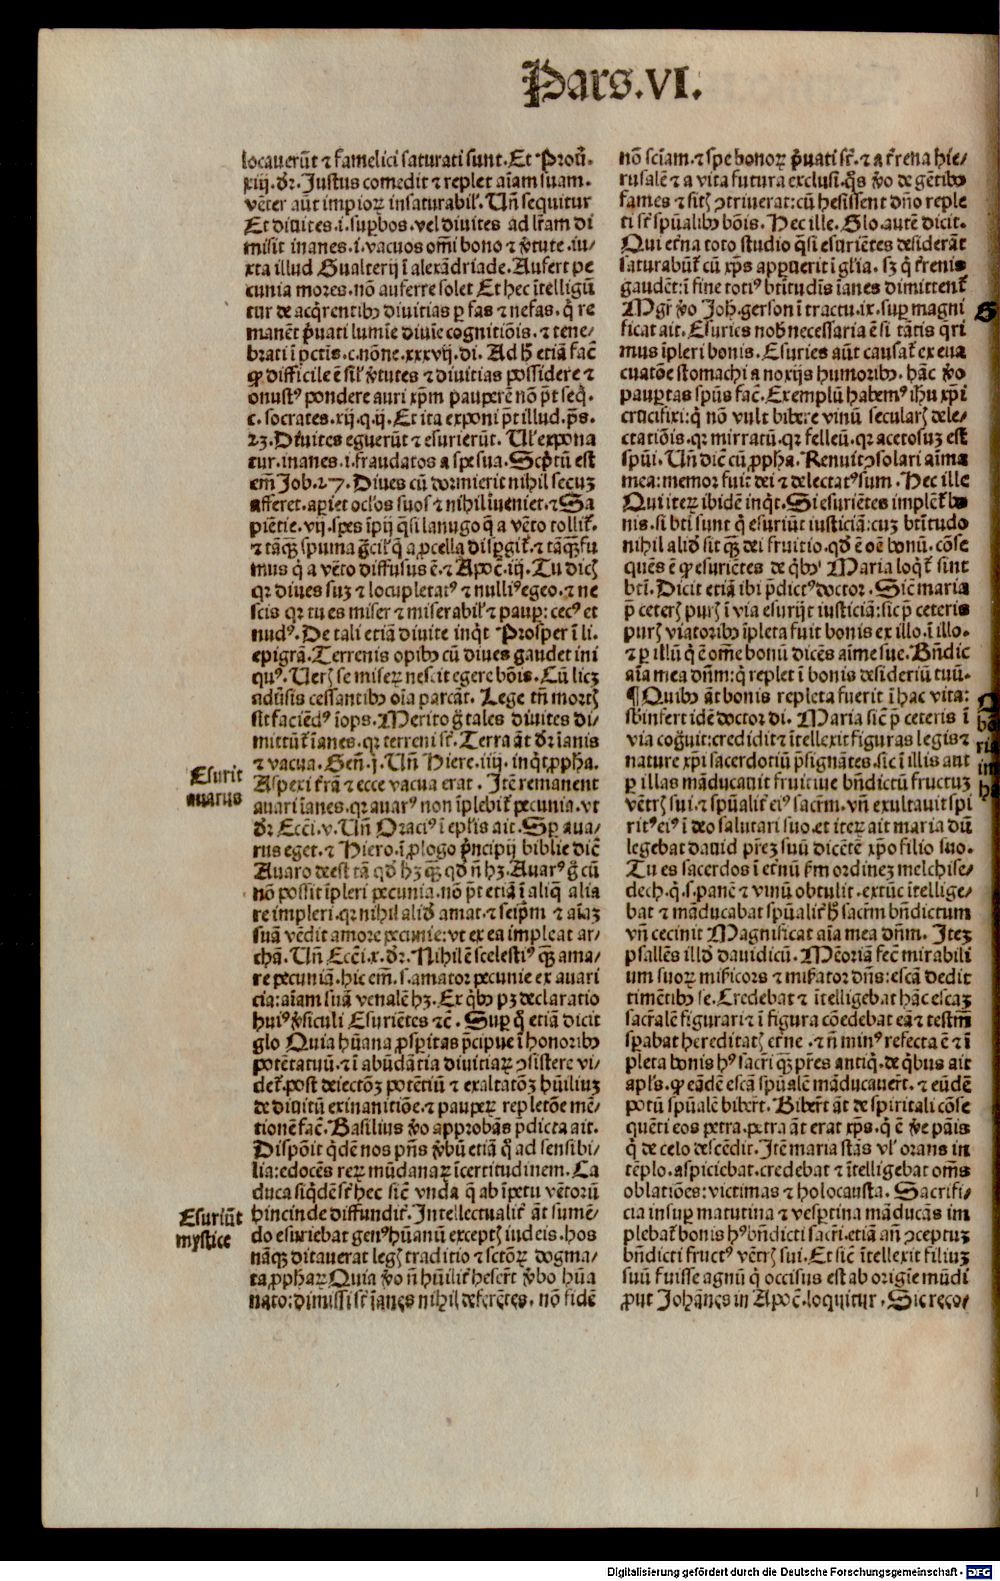 Pars.VI.
locauerūt ⁊ famelici saturati sunt. Et Prou̅.
xiij. dr̄. Justus comedit ⁊ replet aīam suam.
vēter aūt impioꝝ insaturabil'. Un̄ sequitur
Et diuites .i. suꝑbos. vel diuites ad lr̄am di
misit inanes .i. vacuos om̄i bono ⁊ v̄tute .iu⸗
xta illud Gualterij ī alexādriade. Aufert pe
cunia mores. nō auferre solet Et hec ītelligū
tur de acq̄rentibꝰ diuitias ꝑ fas ⁊ nefas. q̄ re
manēt p̄uati lumīe diuīe cognitiōis. ⁊ tene⸗
brati ī pctīs .c. nōne. xxxvij. di. Ad h̄ etiā fac̄
ꝙ difficile ē sil' v̄tutes ⁊ diuitias possidere ⁊
onustꝰ pondere auri xp̄m pauperē nō p̄t seq̄.
c. socrates. xij. q. ij. Et ita exponi p̄t illud. ps̄.
23. Diuites eguerūt ⁊ esurierūt. Ul' expona
tur. inanes .i. fraudatos a spe sua. Scp̄tū est
em̄ Job. 27. Diues cū dormierit nihil secuꝫ
afferet. aꝑiet oclos suos ⁊ nihil īueniet. ⁊ Sa
piētie. vij. spes īpij q̄si lanugo q̄ a vēto tollit̄.
⁊ tāq̄ꝫ spuma g̅cil' q̄ a ꝓcella disꝑgit̄. ⁊ tāq̄ꝫ fu
mus q̄ a vēto diffusus ē. ⁊ Apoc̄. iij. Tu dicꝭ
qꝛ diues suꝫ ⁊ locupletatꝰ ⁊ nulliꝰ egeo. ⁊ ne
scis qꝛ tu es miser ⁊ miserabil' ⁊ pauꝑ: cecꝰ et
nudꝰ. De tali etiā diuite inq̄t Prosper ī li.
epigrā. Terrenis opibꝰ cū diues gaudet ini
quꝰ. Uerꝭ se miseꝝ nescit egere bōis. Cū licꝫ
aduīsis cessantibꝰ oīa parcāt. Lege tn̄ mortꝭ
sit faciēdꝰ īops. Merito g̅ tales diuites di⸗
mittūt̄ īanes. qꝛ terreni st̄. Terra āt dr̄ īanis
⁊ vacua. Gen̄. j. Un̄ Hiere. iiij. inq̄t ꝓpha.
Aspexi t̄rā ⁊ ecce vacua erat. Itē remanent
auari īanes. qꝛ auarꝰ non īplebit̄ pecunia. vt
dr̄ Ecci. v. Un̄ Oraciꝰ ī epl'is ait. Sꝑ aua⸗
rus eget. ⁊ Hiero. ī ꝓlogo p̄ncipij biblie dic̄
Auaro deest tā qd̄ hꝫ q̄ꝫ qd̄ n̄ hꝫ. Auarꝰ g̅ cū
nō possit īpleri pecunia. nō p̄t etiā ī aliq̄ alia
re impleri. qꝛ nihil aliud̄ amat. ⁊ seip̄m ⁊ aīaꝫ
suā vēdit amore pecunie: vt ex ea impleat ar⸗
chā. Un̄ Ecci. x. dr̄. Nihil ē scelestiꝰ q̄ꝫ ama⸗
re pecuniā. hic em̄. s. amator pecunie ex auari
cia: aīam suā venalē hꝫ. Ex q̄bꝰ pꝫ declaratio
huiꝰ v̄siculi Esuriētes ⁊c̄. Suꝑ q̄ etiā dicit
glo Quia hūana ꝓsꝑitas p̄cipue ī honoribꝰ
potētatuū. ⁊ ī abūdātia diuitiaꝝ ꝯsistere vi⸗
det̄. post deiectōꝫ potētiū ⁊ exaltatōꝫ hūiliuꝫ
de diuitū exinanitiōe. ⁊ pauꝑꝝ repletōe mē⸗
tionē fac̄. Basilius v̄o approbās pdicta ait.
Dispōit q̄dē nos pn̄s v̄bū etiā q̄ ad sensibi⸗
lia: edocēs reꝝ mūdanaꝝ īcertitudinem. Ca
duca siq̄dē st̄ hec sic̄ vnda q̄ ab īpetu vētorū
hincinde diffundit̄. Intellectualit̄ āt sumē⸗
do esuriebat genꝰ hūanū exceptꝭ iudeis. hos
nāq̄ꝫ ditauerat legꝭ traditio ⁊ sctōꝝ dogma⸗
ta ꝓphaꝝ Quia v̄o n̄ hūilit̄ heser̄t v̄bo hūa
nato: dimissi st̄ īanes nihil deferētes. nō fidē
Esurit
auarus
Esuriūt
mystice
nō sciam. ⁊ spe bonoꝝ p̄uati st̄. ⁊ a t̄rena hie⸗
rusalē ⁊ a vita futura exclusi. q̄s v̄o de gētibꝰ
fames ⁊ sitꝭ ꝯtriuerat: cū hesissent dn̄o reple
ti st̄ spūalibꝰ bōis. Hec ille. Glo. autē dicit.
Qui et̄na toto studio q̄si esuriētes desiderāt
saturabūt̄ cū xp̄s appuerit ī gl'ia. sꝫ q̄ t̄renis
gaudēt: ī fine totiꝰ btītudīs īanes dimittent̄
Mgr̄ v̄o Joh. gerson ī tractu. ix. suꝑ magni
ficat ait. Esuries nob̄ necessaria ē si tātis q̄ri
mus īpleri bonis. Esuries aūt causat̄ ex eua
cuatōe stomachi a noxijs humoribꝰ. hāc v̄o
pauꝑtas spūs fac̄. Exemplū habemꝰ ihu xp̄i
crucifixi: q̄ nō vult bibere vinū secularꝭ dele⸗
ctatiōis. qꝛ mirratū. qꝛ felleū. qꝛ acetosuꝫ est
spūi. Un̄ dic̄ cū ꝓpha. Renuit ꝯsolari aīma
mea: memor fui dei ⁊ delectatꝰ sum. Hec ille
Qui iteꝝ ibidē inq̄t. Si esuriētes implent̄ bo
nis. si bti sunt q̄ esuriūt iusticiā: cuꝫ btītudo
nihil aliud̄ sit q̄ꝫ dei fruitio. qd̄ ē oē bonū. cōse
quēs ē ꝙ esuriētes de q̄bꝰ Maria loq̄t̄ sint
bti. Dicit etiā ibi p̄dictꝰ doctor. Sic̄ maria
p̄ ceterꝭ purꝭ ī via esurijt iusticiā: sic p̄ ceteris
purꝭ viatoribꝰ īpleta fuit bonis ex illo. ī illo.
⁊ ꝑ illū q̄ ē om̄e bonū dicēs aīme sue. Bn̄dic
aīa mea dn̄m: q̄ replet ī bonis desideriū tuū.
¶ Quibꝰ āt bonis repleta fuerit ī hac vita:
sb̄infert idē doctor di. Maria sic̄ p̄ ceteris ī
via cog̅uit: credidit ⁊ ītellexit figuras legis ⁊
nature xp̄i sacerdotiū p̄signātes. sic ī illis aut
ꝑ illas māducauit fruitiue bn̄dictū fructuꝫ
vētrꝭ sui. ⁊ spūalit̄ eiꝰ sacrm̄. vn̄ exultauit spi
ritꝰ eiꝰ ī deo salutari suo. et iteꝝ ait maria dū
legebat dauid pr̄eꝫ suū dicētē xp̄o filio suo.
Tu es sacerdos ī et̄nū ẜm ordineꝫ melchise⸗
dech. q̄. s. panē ⁊ vinū obtulit. extūc ītellige⸗
bat ⁊ māducabat spūalit̄ h̄ sacrm̄ bn̄dictum
vn̄ cecinit Magnificat aīa mea dn̄m. Iteꝫ
psallēs illd̄ dauidicū. Mēoriā fec̄ mirabili
um suoꝝ mīsicors ⁊ misator dn̄s: escā dedit
timētibꝰ se. Credebat ⁊ ītelligebat hāc escaꝫ
sacr̄alē figurari ⁊ ī figura cōedebat eā ⁊ testim̄
sꝑabat hereditatꝭ et̄ne. ⁊ n̄ minꝰ refecta ē ⁊ ī
pleta bonis hꝰ sacr̄i q̄ꝫ pr̄es antiq̄. de q̄bus ait
apl's. ꝙ eādē escā spūalē māducauer̄t. ⁊ eūdē
potū spūalē biber̄t. Biber̄t āt de spiritali cōse
quēti eos petra. petra āt erat xp̄s. q̄ ē v̄e pāis
q̄ de celo descēdit. Itē maria stās vl' orans in
tēplo. aspiciebat. credebat ⁊ ītelligebat om̄s
oblatiōes: victimas ⁊ holocausta. Sacrifi⸗
cia insuꝑ matutina ⁊ vesꝑtina māducās im
plebat̄ bonis hꝰ bn̄dicti sacr̄i. etiā an̄ ꝯceptuꝫ
bn̄dicti fructꝰ vētrꝭ sui. Et sic̄ ītellexit filiuꝫ
suū fuisse agnū q̄ occisus est ab origīe mūdi
ꝓut Johānes in Apoc̄. loquitur. Sic reco⸗
Digitalisierung gefördert durch die Deutsche Forschungsgemeinschaft - DFG